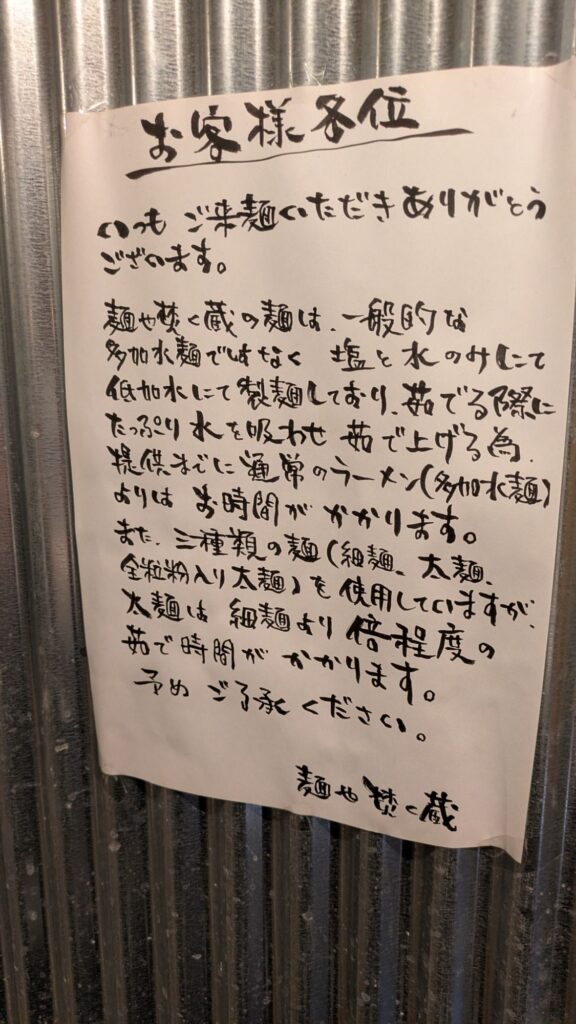 お客様各位
いつも ご来麺いただき ありがとう
ございます。
麺や焚く蔵の麺は、一般的な
多加水麺ではなく 塩と水のみにて
低加水にて製麺しており、茹でる際に
たっぷり水を吸わせ 茹で上げる為、
提供までに通常のラーメン(多加水麺)
よりは お時間が かかります。
また、三種類の麺(細麺、太麺、
全粒粉入り太麺)を使用していますが、
太麺は 細麺より 倍程度の
茹で時間が かかります。
予め ご了承ください。
麺や 焚く蔵